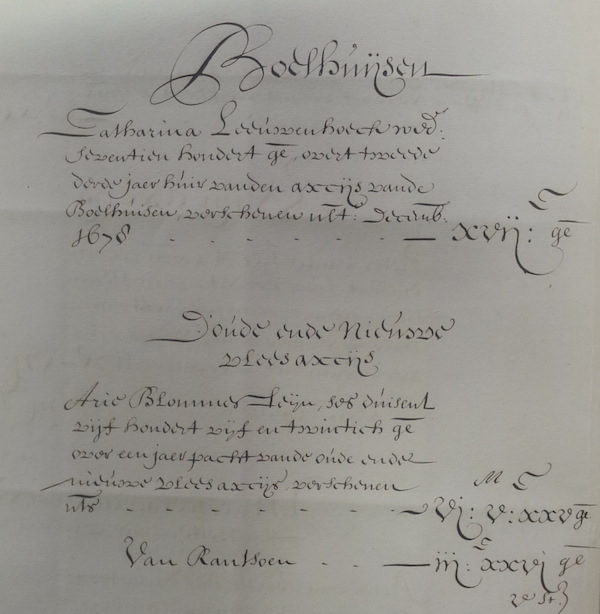 Boelhuijsen
Catharina Leeuwenhoeck wed:
seventien hondert ge, overt tweede
derde jaer huir vanden axcijs vande
Boelhuisen, verschenen ult: Decemb:
1678 - - - - - — xvij: C ge
D'oude ende Nieuwe
vlees axcijs
Arie Blommes Leijn, ses duisent
vijf hondert vijf en twintich ge
over een jaer pacht vande oude ende
nieuwe vlees axcijs verschenen
uts - - - - - - — vj: M v: C xxv ge
Van Rantsoen - - — iij: C xxvj ge